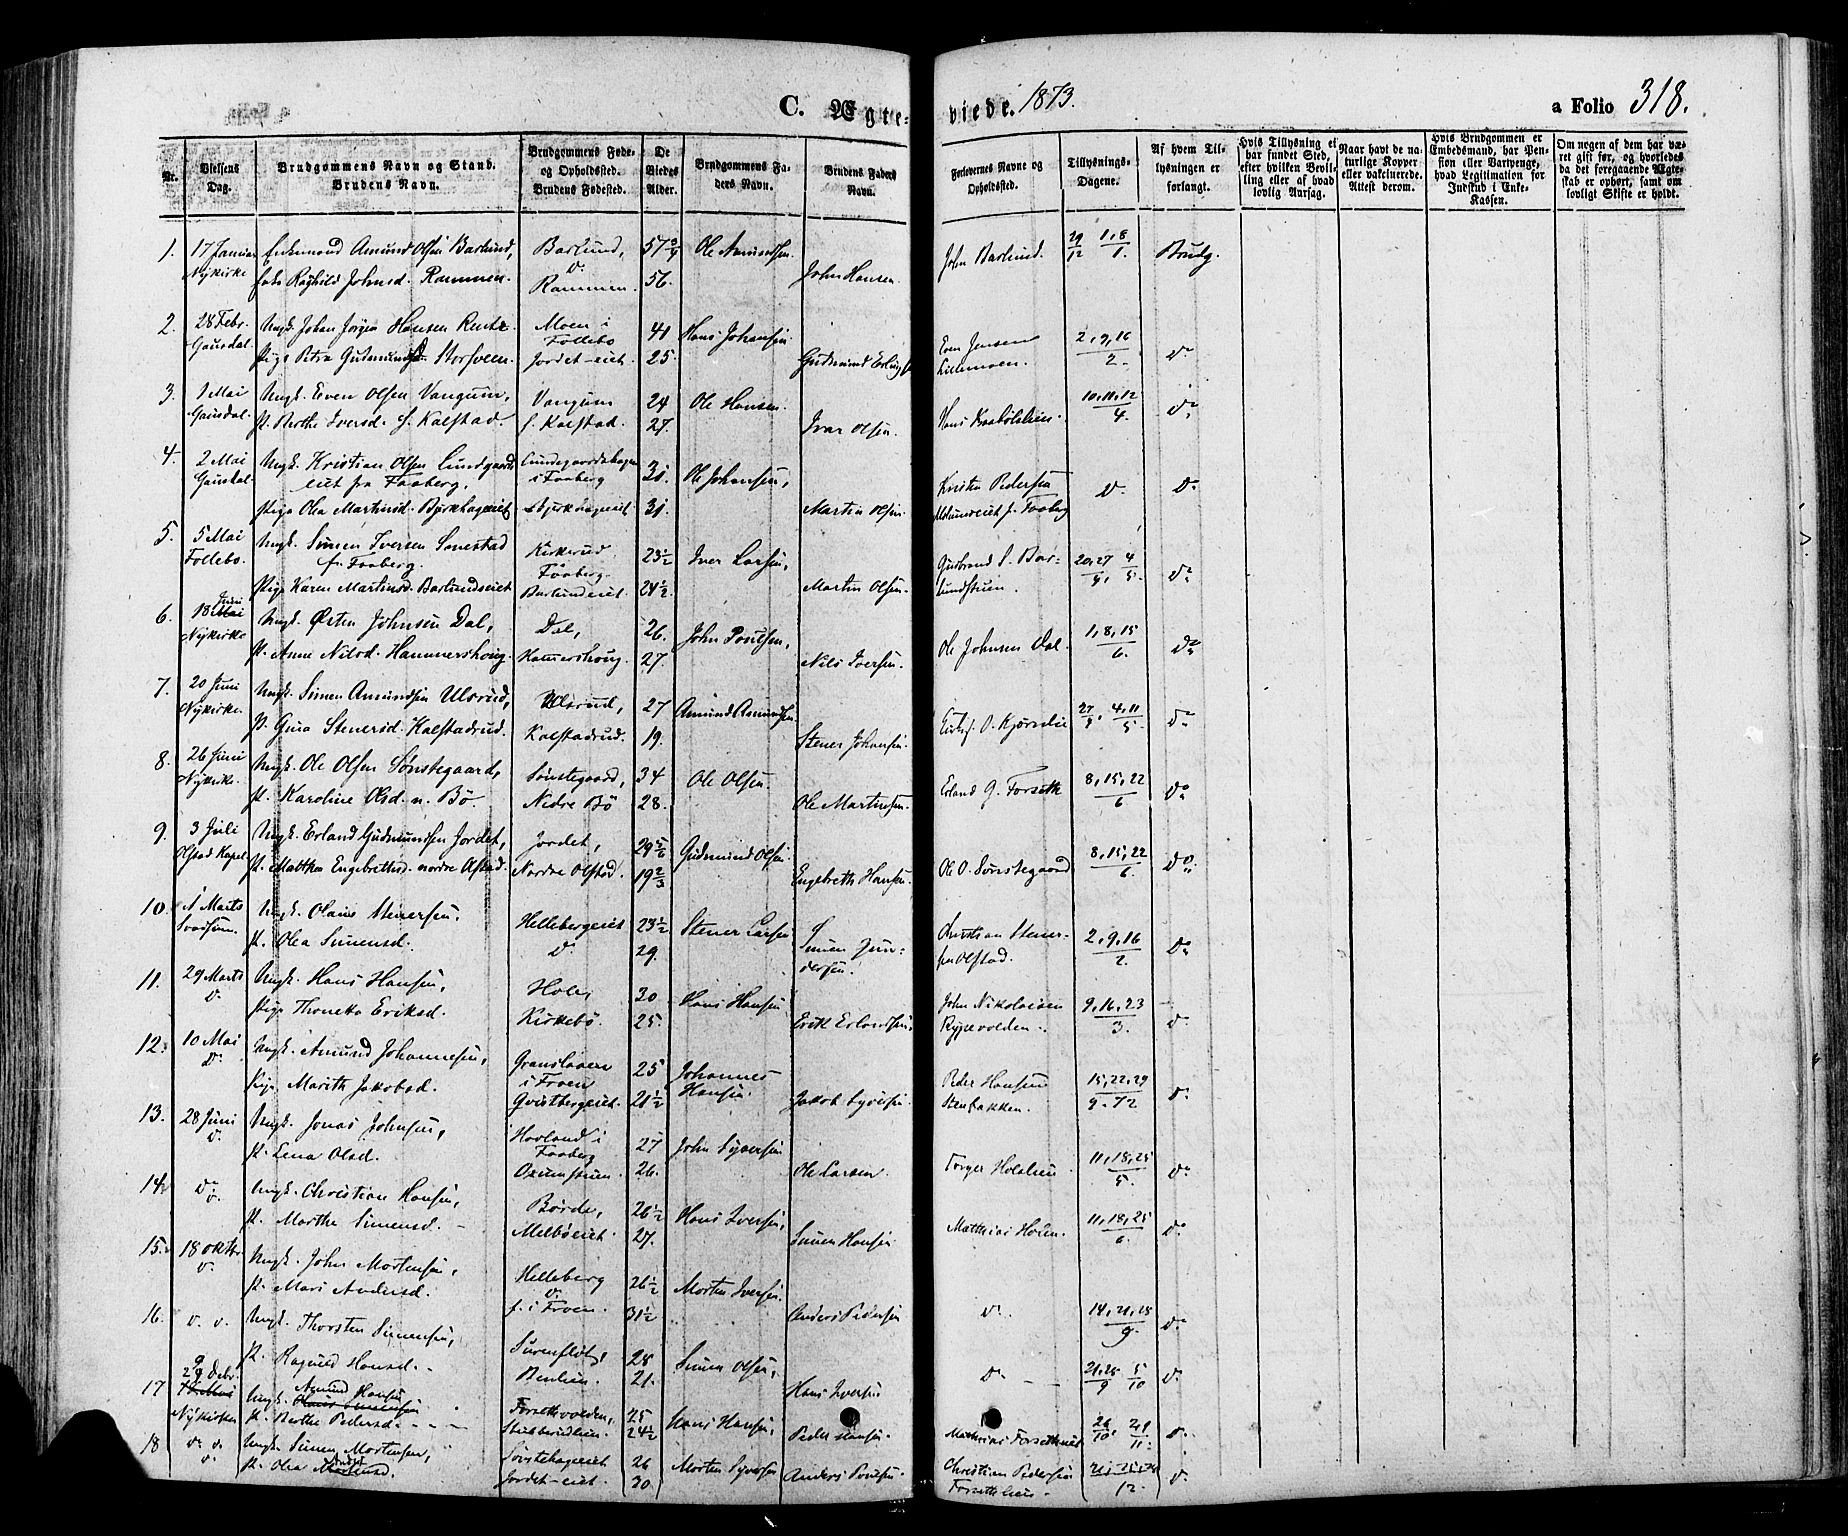 C. Ægte-
viede. 1873.
a Folio 318.
Nr.
Vielsens Dag.
Brudgommens Navn og Stand.
Brudens Navn.
Brudgommens Føde- og Opholdssted.
Brudens Fødested.
De Viedes Alder.
Brudgommens Faders Navn.
Brudens Faders Navn.
Forlovernes Navne og Opholdssted.
Tillysnings-Dagene.
Af hvem Tillysningen er forlangt.
Hvis Tillysning ei har fundet Sted, efter hvilken Bevilling eller af hvad lovlig Aarsag.
Naar havt de naturlige Kopper eller vakcinerede. Attest derom.
Hvis Brudgommen er Embedsmand, har Pension eller Vartpenge, hvad Legitimation for Indskud i Enke-Kassen.
Om nogen af dem har været gift før, og hvorledes da det foregaaende Ægteskab er ophørt, samt om lovligt Skifte er holdt.
1. 17 Januar Enkemand Amund Olsen Barlund, Barlund, 57 Ole Amundsen. John Barlund. 29/12 1,8/1. Brudg.
Nykirke Raghild Johnsd. Rammen. Rammen. 56. John Hansen.
2. 28 Febr. Ungk. Johan Jørgen Hansen Moen i Follebo 41 Hans Johansen Even Jensen 2,9,16/2 do
Gausdal. Pige Petra Storsveen. Jordet-eiet. 25. Gudmund Lillemoen.
3. 1 Mai Ungk. Even Olsen Vangum, Vangum 24 Ole Hansen. 10,11,12/4. do
Gausdal. P. Berthe Iversd. f. Kalstad. f. Kalstad. 27. Ivar Olsen.
4. 2 Mai Ungk. Kristian Olsen i Faaberg 31. Ole Johansen, Kristen Pedersen do do
Gausdal eiet fra Faaberg.
Pige Olea Martinsd. 31. Martin Olsen. f. Faaberg
5. 5 Mai Ungk. Simen Iversen Kirkerud 23½ Iver Larsen, Gudbrand 20,27/4, 4/5. do
Follebo. f. Faaberg. Faaberg.
Pige Karen Martinsd. Barlundseiet Barlundeiet. 24½ Martin Olsen.
6. 18 Juni Ungk. Østen Johnsen Dal, Dal, 26. John Poulsen, Ole Johnsen Dal. 1,8,15/6. do
Nykirke P. Anne Nilsd. Hammershoug. Hammershoug. 27. Nils Iversen.
7. 20 Juni Ungk. Simen Amundsen Ulsrud, Ulsrud, 27 Amund Amundsen. 27/4, 4,11/5. do
Nykirke. P. Gina Stenersd. Kalstadrud. Kalstadrud. 19. Stener Johansen.
8. 26 Juni Ungk. Ole Olsen Sønstegaard, Sønstegaard, 34 Ole Olsen. Erland G. Forseth 8,15,22/6 do
Nykirke. P. Karoline Olsd. n. Bø. Nedre Bø 28. Ole Martinsen.
9. 3 Juli Ungk. Erland Gudmundsen Jordet, Jordet, 29 5/6 Gudmund Olsen. Ole O. Sønstegaard 8,15,22/6. do
Olstad Kapel P. Matthea Engebrethsd. nordre Olstad. Nordre Olstad. 19 2/3 Engebreth Hansen.
10. 1 Marts Ungk. Olaus Stenersen. Hellebergeiet 23½ Stener Larsen Christian Stener- 2,9,16/2. do
Svadsum. P. Olea Simensd. do 29. Simen Gun- sen Olstad.
dersen.
11. 29 Marts Ungk. Hans Hansen, Hole, 30 Hans Hansen John Nikolaisen 9,16,23/3. do
do Pige Thonetta Eriksd. Kirkebø. 25. Erik Erlandsen, Rypevolden.
12. 10 Mai Ungk. Amund Johannesen, i Froen 25 Johannes Hansen. Peder Hansen 15,22,29 do
do Pige Marith Jakobsd. Qvistbergeiet. 21½ Jakob Syversen. Stenbakken. 9.72
13. 28 Juni Ungk. Jonas Johnsen, Hovland i Faaberg 27 John Syversen Torger Holslien. 11,18,25/5. do
do P. Lena Olsd. 26. Ole Larsen.
14. do Ungk. Christian Hansen, Børde, 26½ Hans Iversen, Matthias Holen. 11,18,25/6. do
P. Marthe Simensd. Melbøeiet. 27. Simen Hansen
15. 18 Oktbr. Ungk. John Mortensen, Helleberg 26½ Morten Iversen. do 14,21,28/9. do
do P. Mari Andersd. f. i Froen. 31½ Anders Pedersen
16. do do Ungk. Thorsten Simensen, Surenflot, 28 Simen Olsen, do 21,28/9 5/10 do
P. Ragnild Hansd. Benlien. 21. Hans Iversen
17 29 Debr. Ungk. Amund Hansen Forsethvolden, 25 Hans Hansen, Mathias Forsetheiet 26/10. 2,9/11. do
Nykirken P. Berthe Pedersd. 24½ Peder Hansen.
18 do do Ungk. Simen Mortensen, 26 Morten Syversen Christian Pedersen do
P. Olea Andersd. Jordet-eiet. 30. Anders Poulsen. Forsethlien. 12.